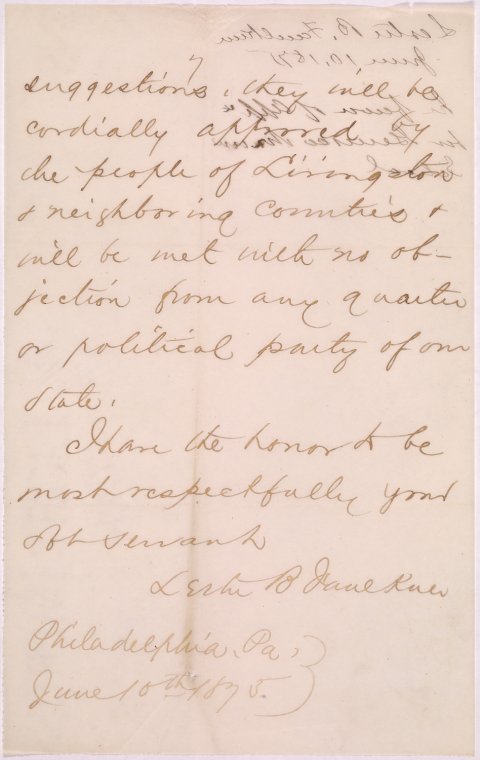 suggestions, they will be
cordially approved by
the people of Livingston
& neighboring Counties &
will be met with no ob-
jection from any quarter
or political party of our
State.
I have the honor to be
most respectfully your
Obt Servant
Lester B Faulkner
Philadelphia, Pa,
June 10th 1875.
Lester B. Faulkner
June 10, 1875